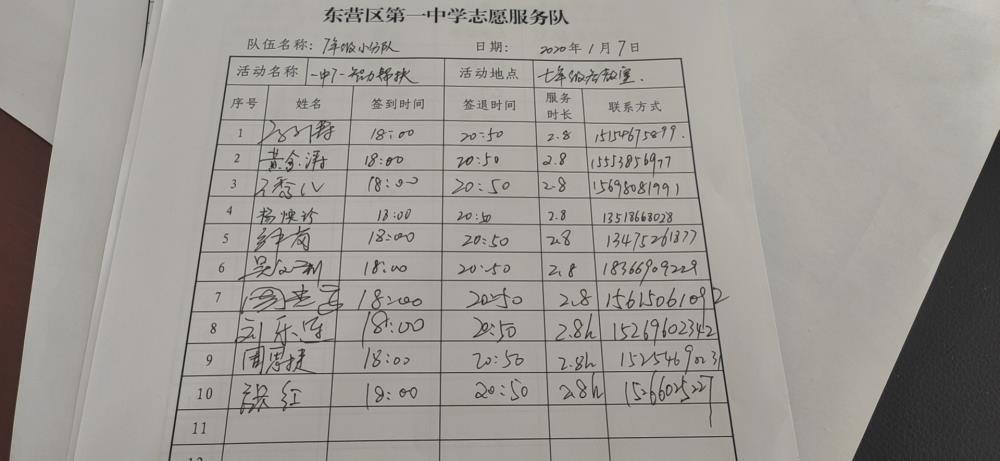 东营区第一中学志愿服务队
队伍名称：7年级小分队 日期： 2020年1月7日
活动名称 一中7-智力帮扶 活动地点 七年级各教室.
序号 姓名 签到时间 签退时间 服务时长 联系方式
1 18:00 20:50 2.8 15154675899.
2 黄金涛 18:00 20:50 2.8 15553856977
3 18:00 20:50 2.8 15698081991
4 杨焕珍 18:00 20:50 2.8 13518668028
5 18:00 20:50 2.8 13475261877
6 18:00 20:50 2.8 18366909229
7 18:00 20:50 2.8 15615061092
8 刘乐莲 18:00 20:50 2.8h 15269602342
9 周思捷 18:00 20:50 2.8h 15254690231
10 红 18:00 20:50 2.8h 15266025227
11